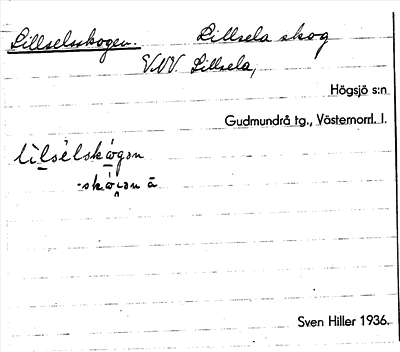 Lillselsskogen. Lillsela skog
V.NV. Lillsela,
Högsjö s:n
Gudmundrå tg., Västernorrl. l.
lìlsèlskó̀gən
-skó̀gən ā
Sven Hiller 1936.